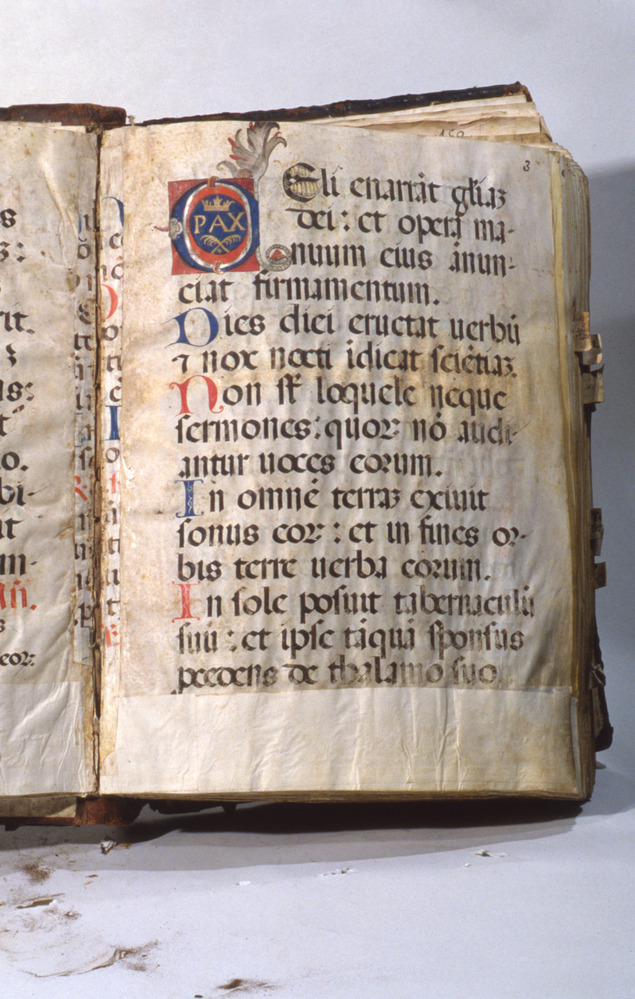 s
s:
rit.
ꝫ
is:
t
o.
bi-
at
m-
añ.
s
eor:
150
3
PAX
Celi enarrāt gl̄iaꝫ
dei : et opera ma-
nuum eius ānun-
ciat firmamentum.
Dies diei eructat uerbū
⁊ nox nocti īdicat sciētiaꝫ.
Non sᷤt loquele neque
sermones : quoꝝ nō audi-
antur uoces eorum.
In omnē terraꝫ exiuit
sonus eoꝝ : et in fines or-
bis terre uerba eorum.
In sole posuit tabernaculū
suū : et ipse tāquā sponsus
p̄cedens de thalamo suo